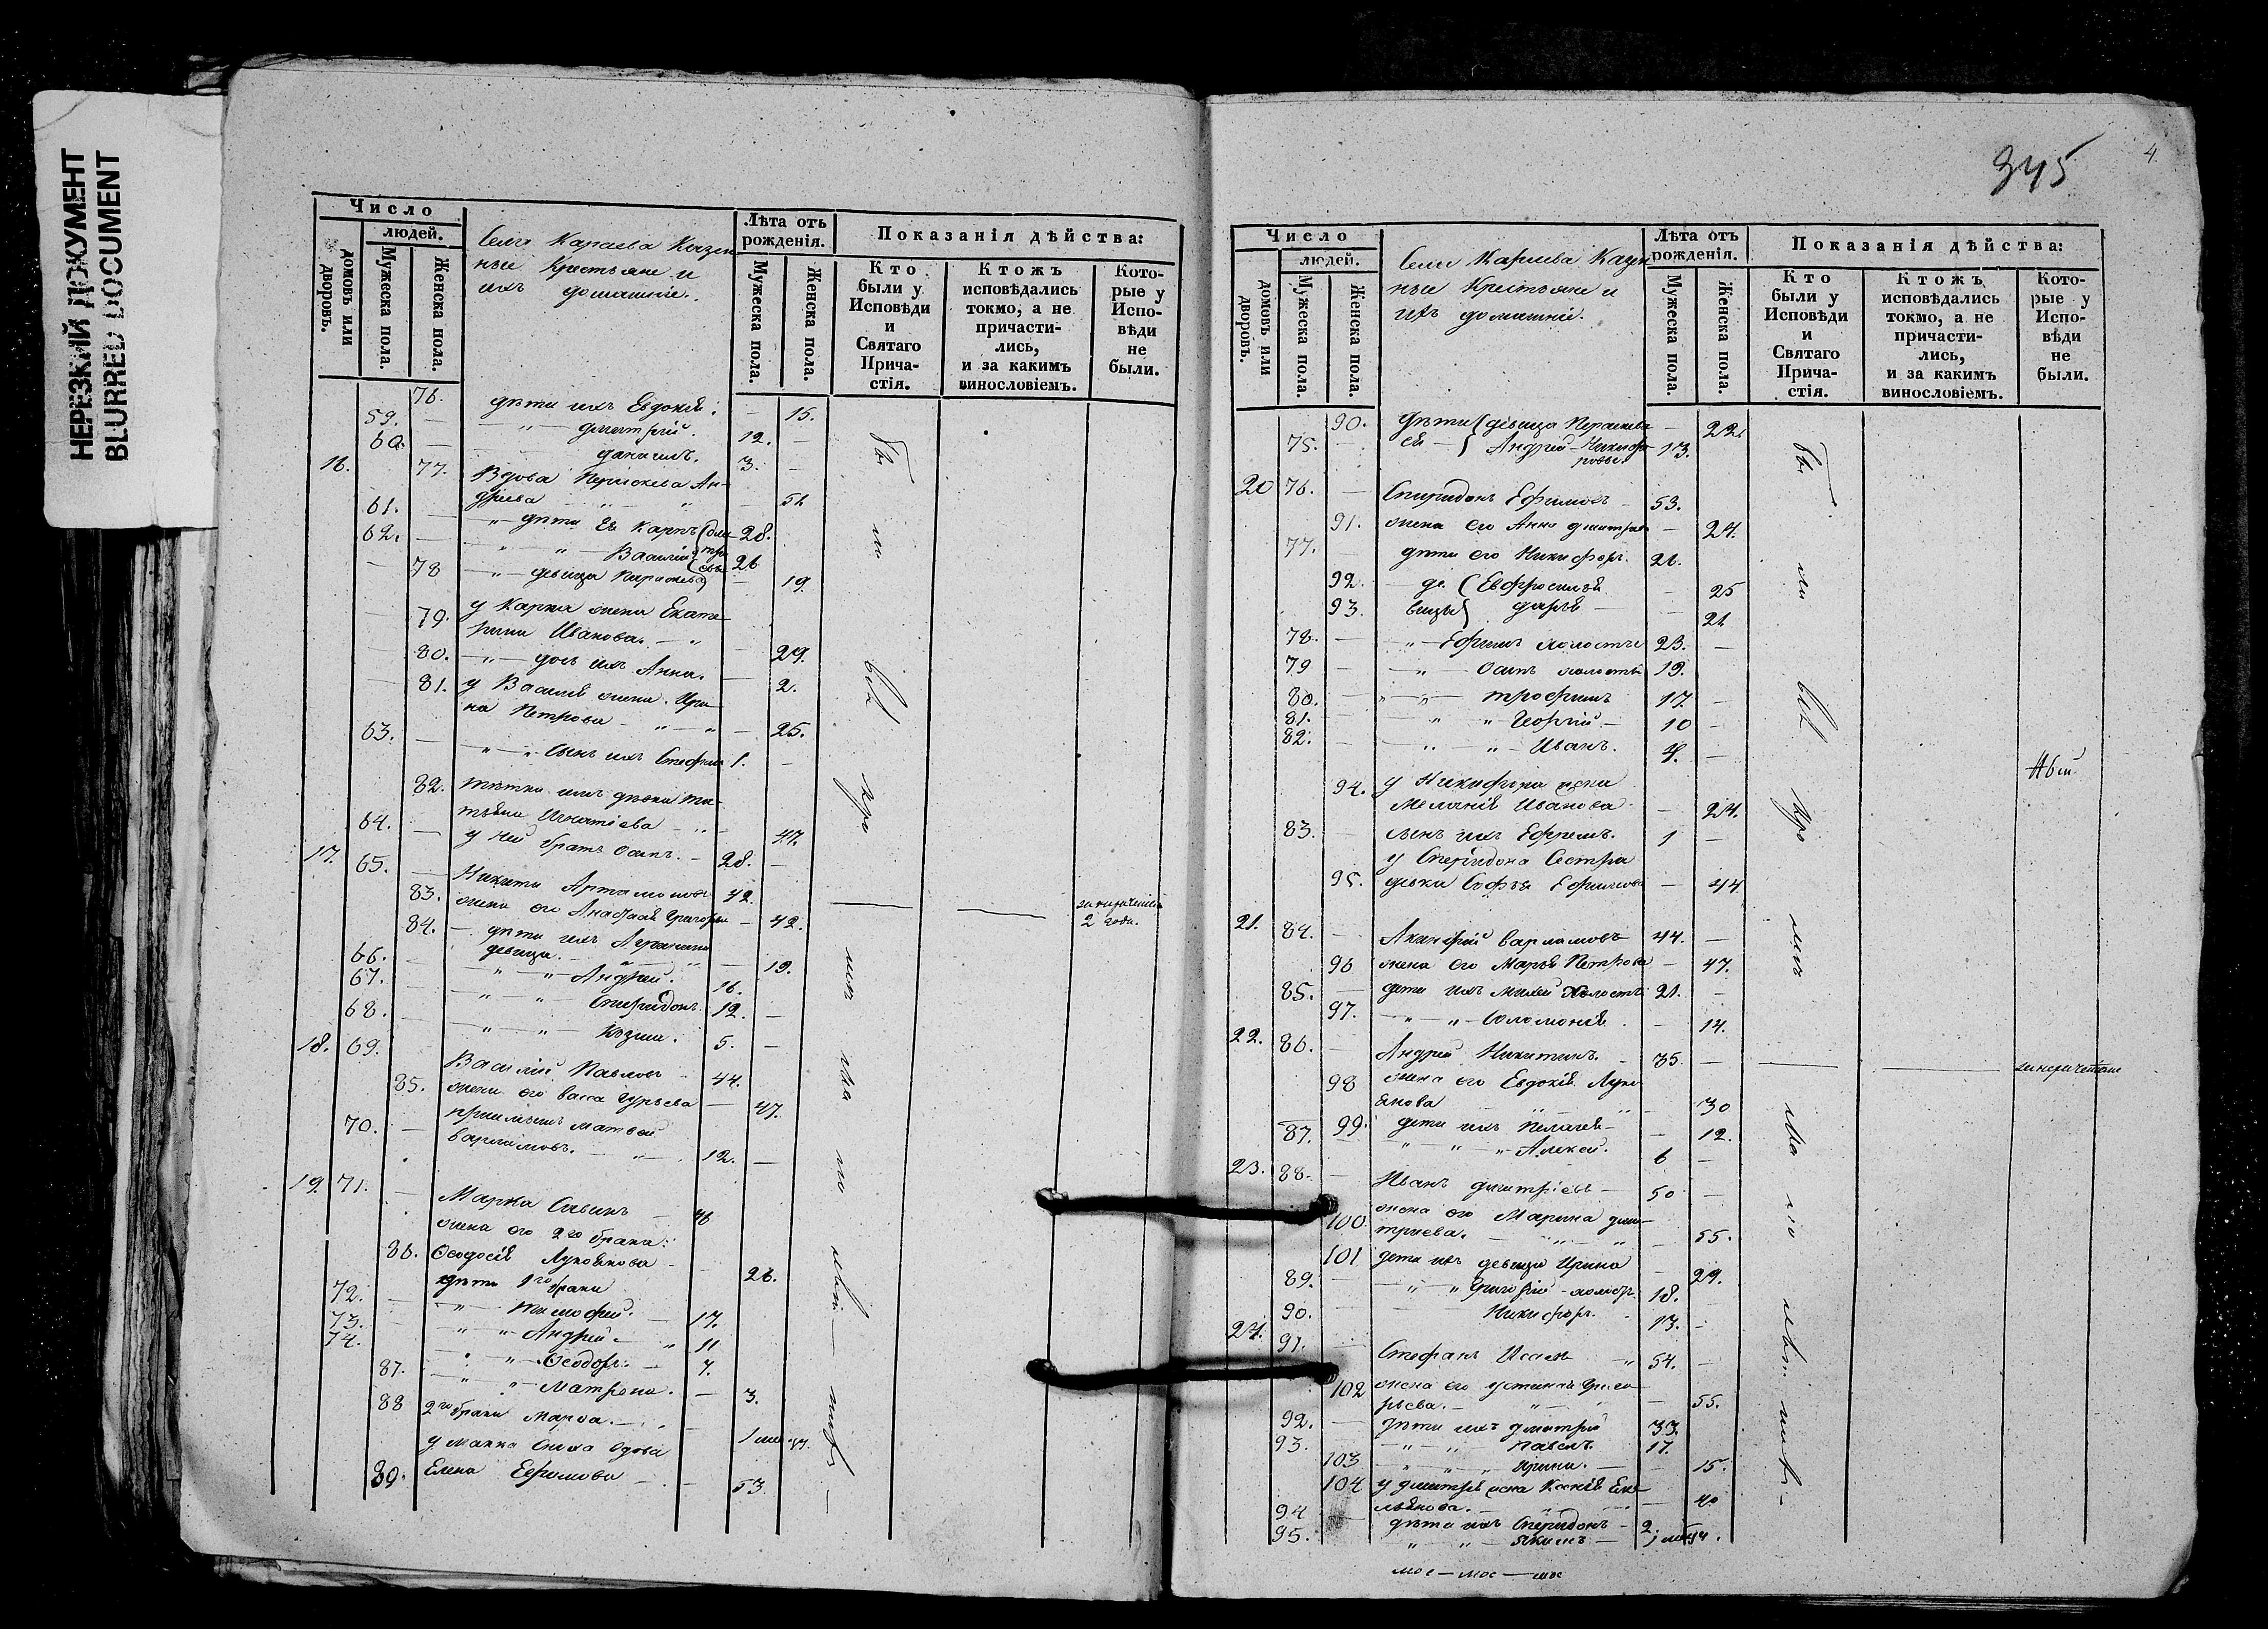 НЕРЕЗКИЙ ДОКУМЕНТ
BLURRED DOCUMENT
Число
людей.
домовъ или дворовъ.
Мужеска пола.
Женска пола.
Села Караева Казен
ные Крестьяне и
ихъ домашніе.
Лѣта отъ рожденія.
Мужеска пола.
Женска пола.
Показанія дѣйства:
Кто были у Исповѣди и Святаго Прича-стія.
Ктожъ исповѣдались токмо, а не причасти-лись, и за какимъ винословіемъ.
Кото-рые у Испо-вѣди не были.
76. дѣти ихъ Евдокія. 15.
59. „ Дмитрій. 12.
60. Даніилъ. 3.
16. 77. Вдова Ан-
дреева 51
61. дѣти ея Карпъ 28.
62. Василій 26
78 девица 19.
у Карпа жена Екате-
79. рина Иванова. 29.
80. дочь ихъ Анна. 2.
81. у Василія жена Ири-
на Петрова 25.
63. сынъ ихъ Стефанъ 1.
82. тетка ихъ девка Та-
тьяна Игнатіева 47.
64. у ней братъ Осипъ. 28.
17. 65. Никита Артамоновъ 42.
83. жена его Анастасія Григорьева 42.
2 года.
84. дѣти ихъ
девица. 19.
66. Андрей. 16.
67. Спиридонъ. 12.
68. Козма. 5.
18. 69. Василій Павловъ 44.
85. жена его Васса Гурьева 47.
70. пріемышъ Матвей
Варламовъ. 12.
19. 71. Марка Савинъ 46
жена его 2го брака:
86. Ѳеодосія Лукоянова 26.
дѣти 1го брака
72. Тимофей. 17.
73. Андрей 11
74. Ѳеодоръ. 7.
87. Матрена. 3.
88 2го брака Марѳа. 1
у Марка сноха вдова
89. Елена Ефимова 53.
345
4.
Число
людей.
домовъ или дворовъ.
Мужеска пола.
Женска пола.
Села Караева Казен
ные Крестьяне и
ихъ домашніе.
Лѣта отъ рожденія.
Мужеска пола.
Женска пола.
Показанія дѣйства:
Кто были у Исповѣди и Святаго Прича-стія.
Ктожъ исповѣдались токмо, а не причасти-лись, и за какимъ винословіемъ.
Кото-рые у Испо-вѣди не были.
90. дѣти девица 22.
75. ея Андрей Никифо-ровы. 13.
20 76. Спиридонъ Ефимовъ 53.
91. жена его Анна Дмитріева 24.
77. дѣти его Никифоръ. 26.
92. де- Евфросинія 25
93. вицы Дарья 21
78. Ефимъ холостъ 23.
79 Осипъ холостъ 19.
80. Трофимъ 17.
81. Георгій 10
82. Иванъ. 4.
94. у Никифора жена
Меланія Иванова 24.
83. сынъ ихъ Ефремъ. 1
у Спиридона Сестра
95. девка Софья Ефимова 44
21. 84. Акинфій Варламовъ 44.
96 жена его Марья Петрова 47.
85. дети ихъ холостъ 21.
97. Соломонія 14.
22. 86. Андрей Никитинъ 35.
98 жена его Евдокія Луко
янова 30
99. дети ихъ Пелагея 12.
87. Алексей. 6
23. 88. Иванъ Дмитріевъ 50
100. жена его Марина Дми-
тріева. 55.
101 дети ихъ девица Ирина 29.
89. Григорій холостъ. 18.
90. Никифоръ. 13.
24. 91. Стефанъ Исаевъ 54.
102 жена его Устинья Григо
рьева. 55.
92. дѣти ихъ Дмитрій 33.
93. Павелъ. 17.
103 Ирина. 15.
104 у Дмитрія жена Ксенія Еме
льянова. 40
94 дѣти ихъ Спиридонъ 2.
95. Якимъ